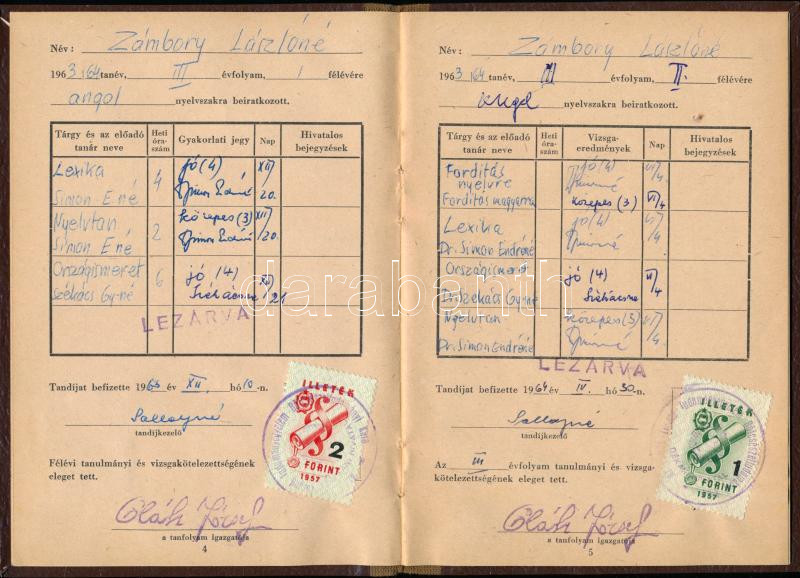 Név: Zámbory Lászlóné
1963/64 tanév, III évfolyam, I félévére
angol nyelvszakra beiratkozott.
Tárgy és az előadó tanár neve | Heti óra-szám | Gyakorlati jegy | Nap | Hivatalos bejegyzések
Lexika
Simon E.né | 4 | jó (4) | XII/20.
Nyelvtan
Simon E.né | 2 | közepes (3) | XII/20.
Országismeret
Székács Gy-né | 6 | jó (4) | XII/21
LEZÁRVA
Tandíjat befizette 1963 év XII. hó 10-n.
tandíjkezelő
Félévi tanulmányi és vizsgakötelezettségének
eleget tett.
Oláh József
a tanfolyam igazgatója
4
ILLETÉK
2
FORINT
1957
Név: Zámbory Lászlóné
1963/64 tanév, III évfolyam, II. félévére
angol nyelvszakra beiratkozott.
Tárgy és az előadó tanár neve | Heti óra-szám | Vizsga-eredmények | Nap | Hivatalos bejegyzések
Fordítás
nyelvre | jó (4) | VI/4.
Fordítás magyarra | közepes (3) | VI/4
Lexika | jó (4) | VI/4.
Dr. Simon Endréné
Országismeret | jó (4) | VI/4
Dr. Székács Gy-né
Nyelvtan | közepes (3) | VI/4.
Dr. Simon Endréné
LEZÁRVA
Tandíjat befizette 1964 év IV. hó 30-n.
tandíjkezelő
Az III évfolyam tanulmányi és vizsga-
kötelezettségének eleget tett.
Oláh József
a tanfolyam igazgatója
5
ILLETÉK
1
FORINT
1957
darabanth